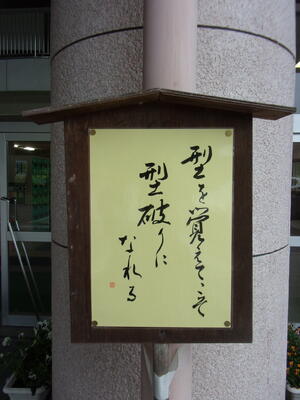 型を覚えて、こそ
型破りに
なれる